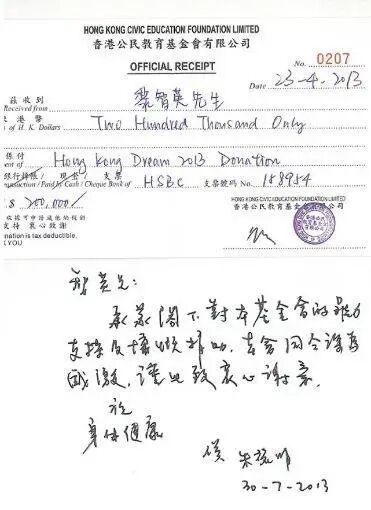 HONG KONG CIVIC EDUCATION FOUNDATION LIMITED
香港公民教育基金會有限公司
OFFICIAL RECEIPT
No. 0207
Date 23-4-2013
茲收到
Received from
黎智英先生
港幣
of H.K. Dollars Two Hundred Thousand Only
係付
ment of Hong Kong Dream 2013 Donation
銀行轉賬/現金/支票
Paid by Cash / Cheque Bank of HSBC 支票號码 No. 188954
$ 200,000/
HONG KONG CIVIC EDUCATION FOUNDATION LIMITED
香港公民教育基金會有限公司
收據可申請減免稅餉
支持 衷心致謝
nation is tax deductible.
K YOU
智英兄:
承蒙閣下對本基金會的鼎力
支持及慷慨捐助,本會同人深為
感激,謹此致衷心謝意.
祝
身体健康
朱耀明
30-7-2013